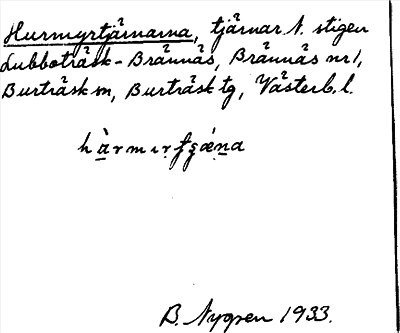 Hurmyrtjärnarna, tjärnar N. stigen
Lubboträsk - Brännäs, Brännäs nr 1,
Burträsk sn, Burträsk tg, Västerb. l.
B. Nygren 1933.